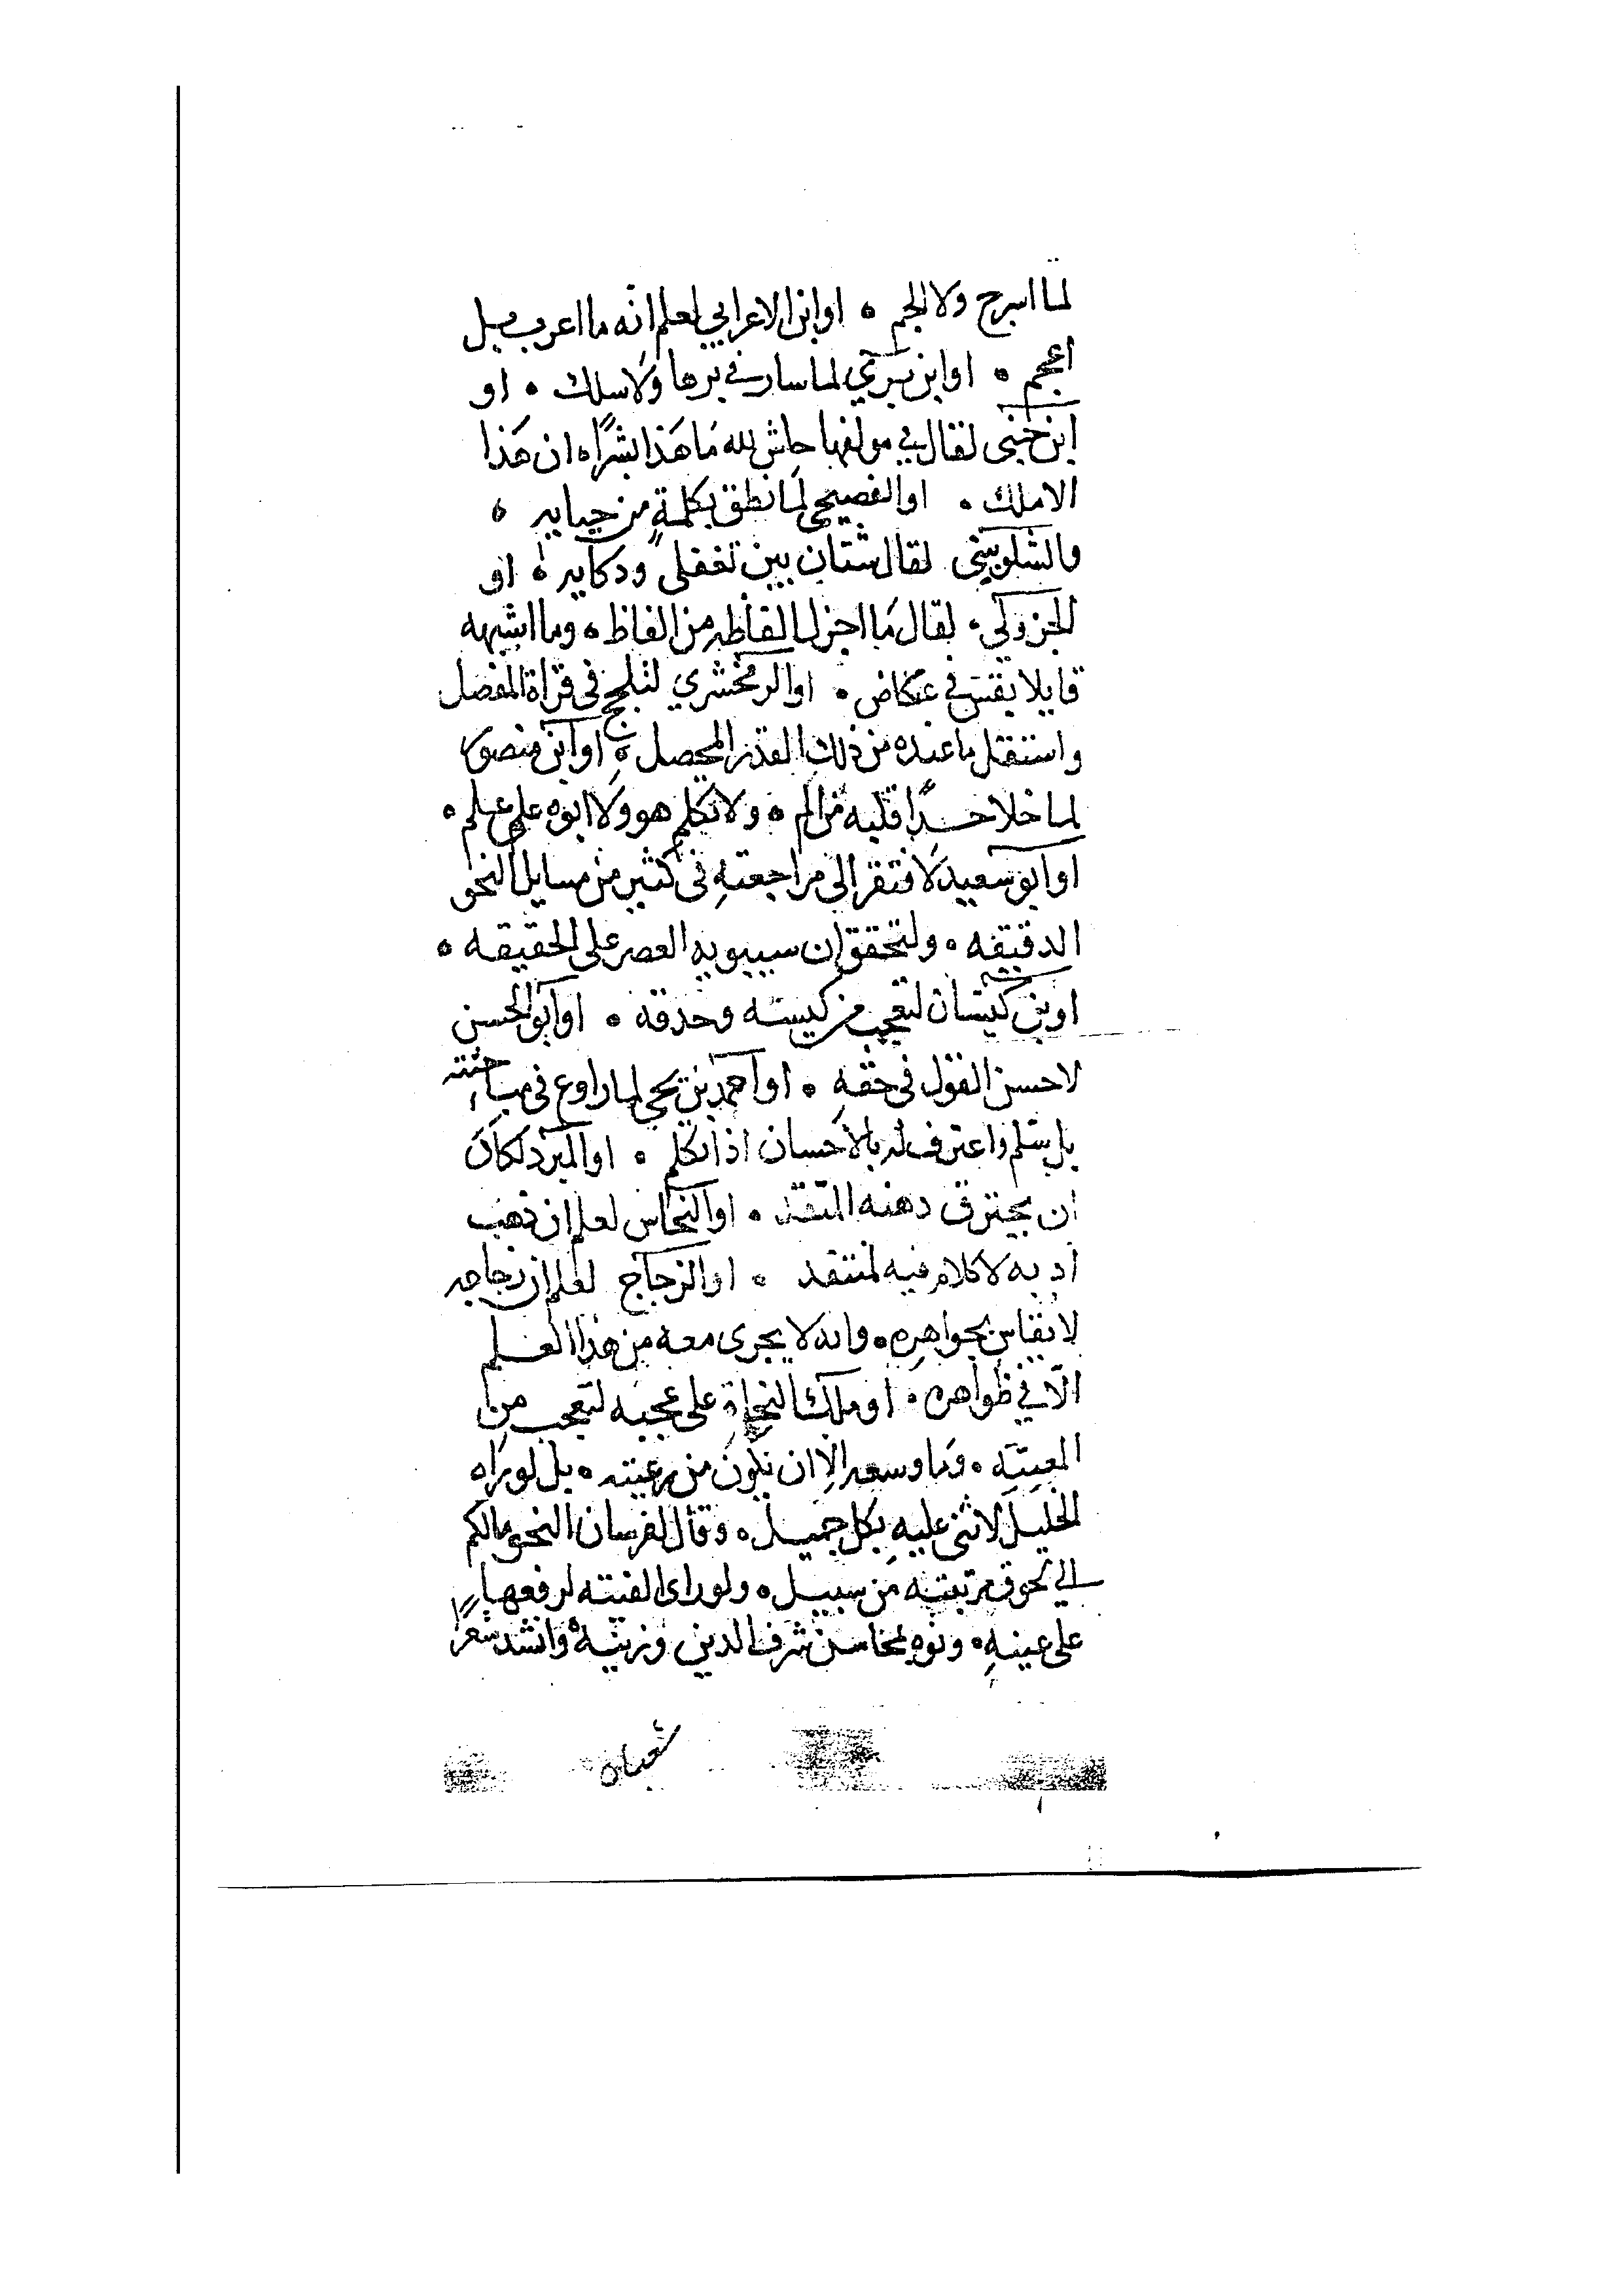 لما اسرج ولا الجم ٥ او ابن الاعرابي لعلم انه ما اعرب بل
اعجم ٥ او ابن بري لما سار في برها ولا سلك ٥ او
ابن جني لقال في مولفها حاش لله ما هذا بشرا ٥ ان هذا
الا ملك ٥ او الفصيحي لما نطق بكلمة من
والشلوبيني لقال شتان بين تغفلي وذكايه ٥ او
الجزولي ٥ لقال ما اجزل الفاظه من الفاظ ٥ وما اشبهه
في عكاض ٥ او الزمخشري لتلجلج في قراة المفصل
واستقل ما عنده من ذلك القدر المحصل ٥ او ابن منصور
لما خلا حسدا قلبه من الم ٥ ولا تكلم هو ولا ابوه على علم ٥
او ابو سعيد لافتقر الى مراجعته في كثير من مسايل النحو
الدقيقه ٥ ولتحقق ان سيبويه العصر على الحقيقه ٥
او بن كيسان لتعجب من كيسه وحذقه ٥ او ابو الحسن
لاحسن القول في حقه ٥ او احمد بن يحيى لما راوغ في مباحثته
بل سلم واعترف له بالاحسان اذا تكلم ٥ او المبرد لكان
ان يحترق دهنه المتقد ٥ او النحاس لعلم ان ذهب
ادبه لا كلام فيه لمنتقد ٥ او الزجاج لعلم ان زجاجه
لا يقاس بجواهره ٥ وانه لا يجرى معه من هذا العلم
الا في ظواهره ٥ او ملك النحاة على عجبه لتعجب من
المعيته ٥ وما وسعه الا ان يكون من رعيته ٥ بل لو راه
الخليل لاثنى عليه بكل جميل ٥ وقال لفرسان النحو مالكم
الى لحوق مرتبته من سبيل ٥ ولو راى الفيته لرفعها
على عينه ٥ ونوه بمحاسن شرف الدين وزينه ٥ وانشد شعرا